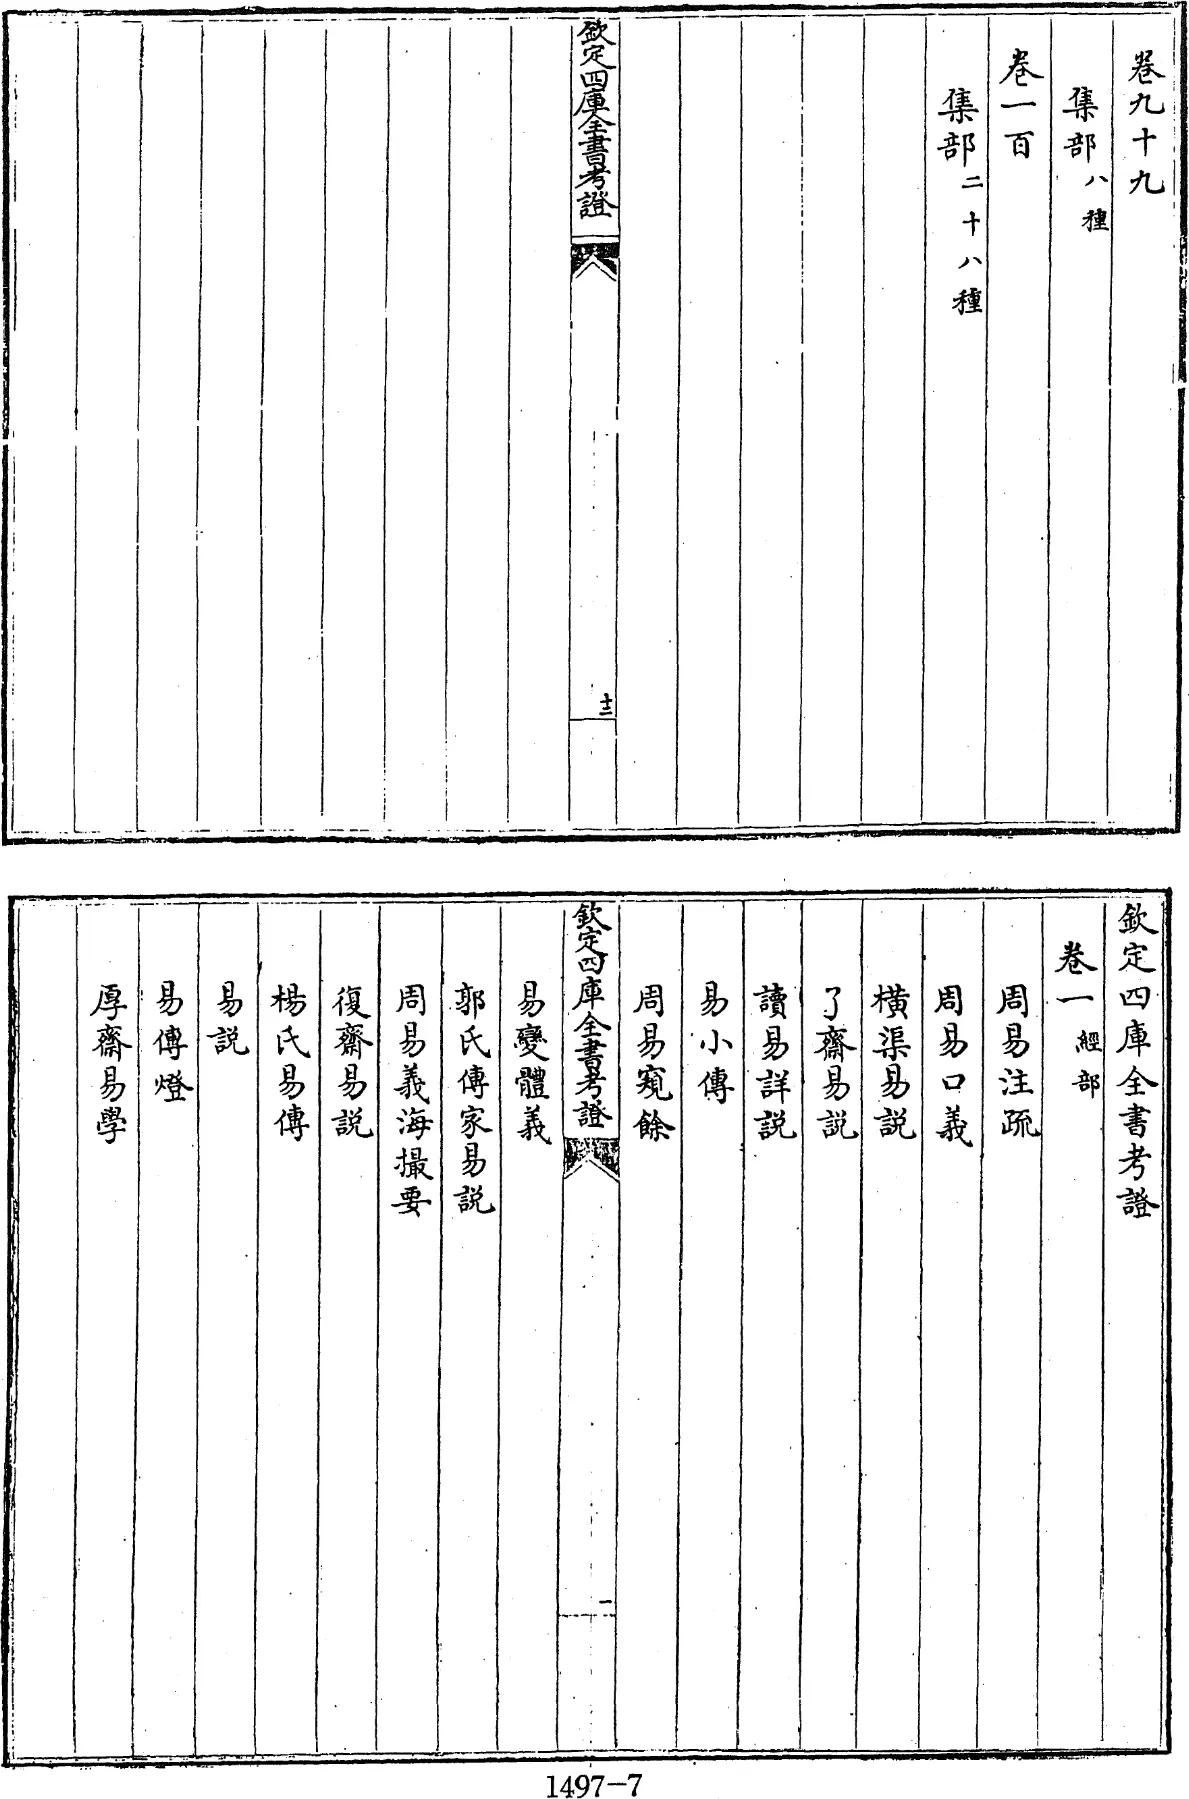 卷九十九
集部八種
卷一百
集部二十八種
欽定四庫全書考證
十二
欽定四庫全書考證
卷一經部
周易注疏
周易口義
橫渠易說
了齋易說
讀易詳說
易小傳
周易窺餘
欽定四庫全書考證
一
易變體義
郭氏傳家易說
周易義海撮要
復齋易說
楊氏易傳
易說
易傳燈
厚齋易學
1497-7